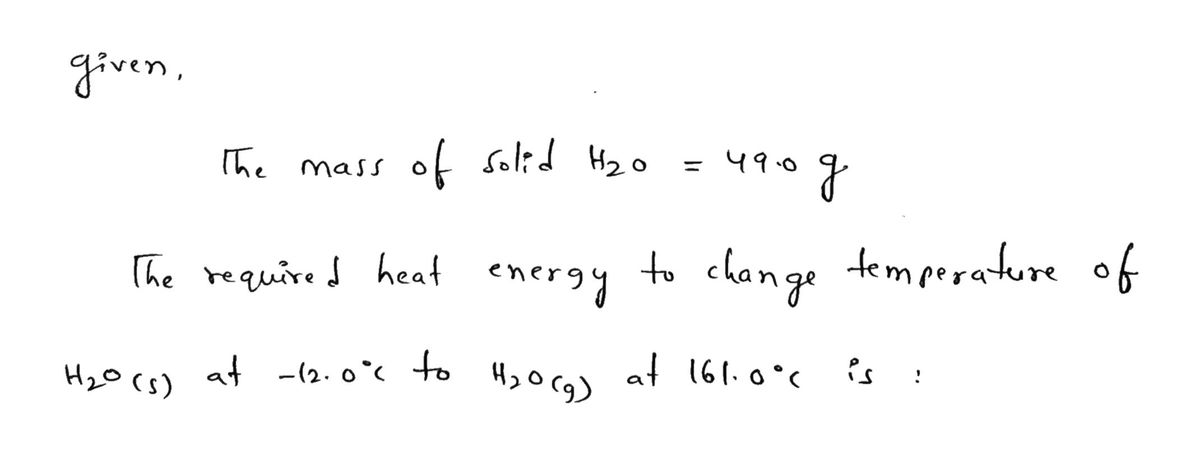 given,
The mass of solid H₂O = 49.0 g
The required heat energy to change temperature of
H₂O(s) at -12.0°C to H₂O(g) at 161.0°C is :